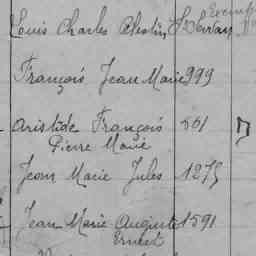 Louis Charles Célestin S^t Servan
François Jean Marie 999
Aristide François 561
Pierre Marie
Jean Marie Jules 1275
Jean Marie Auguste 1591
Ernest